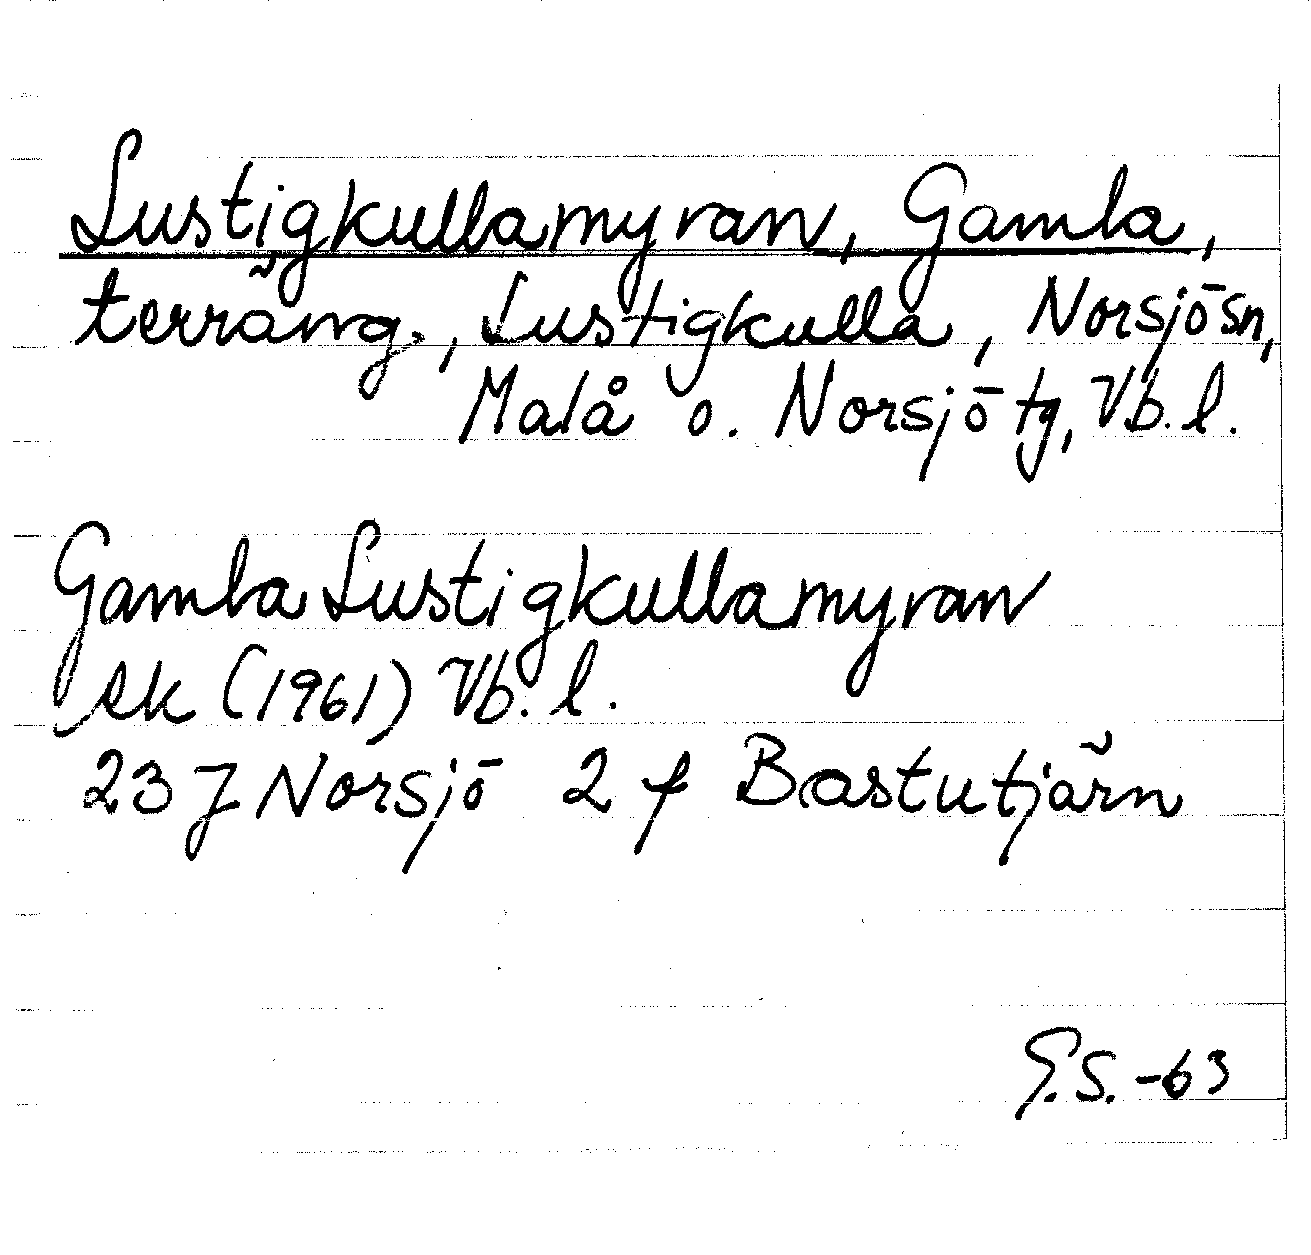 Lustigkullamyran, Gamla,
terräng., Lustigkulla, Norsjö sn,
Malå o. Norsjö tg, Vb. l.
Gamla Lustigkullamyran
ek (1961) Vb. l.
23 J Norsjö 2 f Bastutjärn
G.S. -63